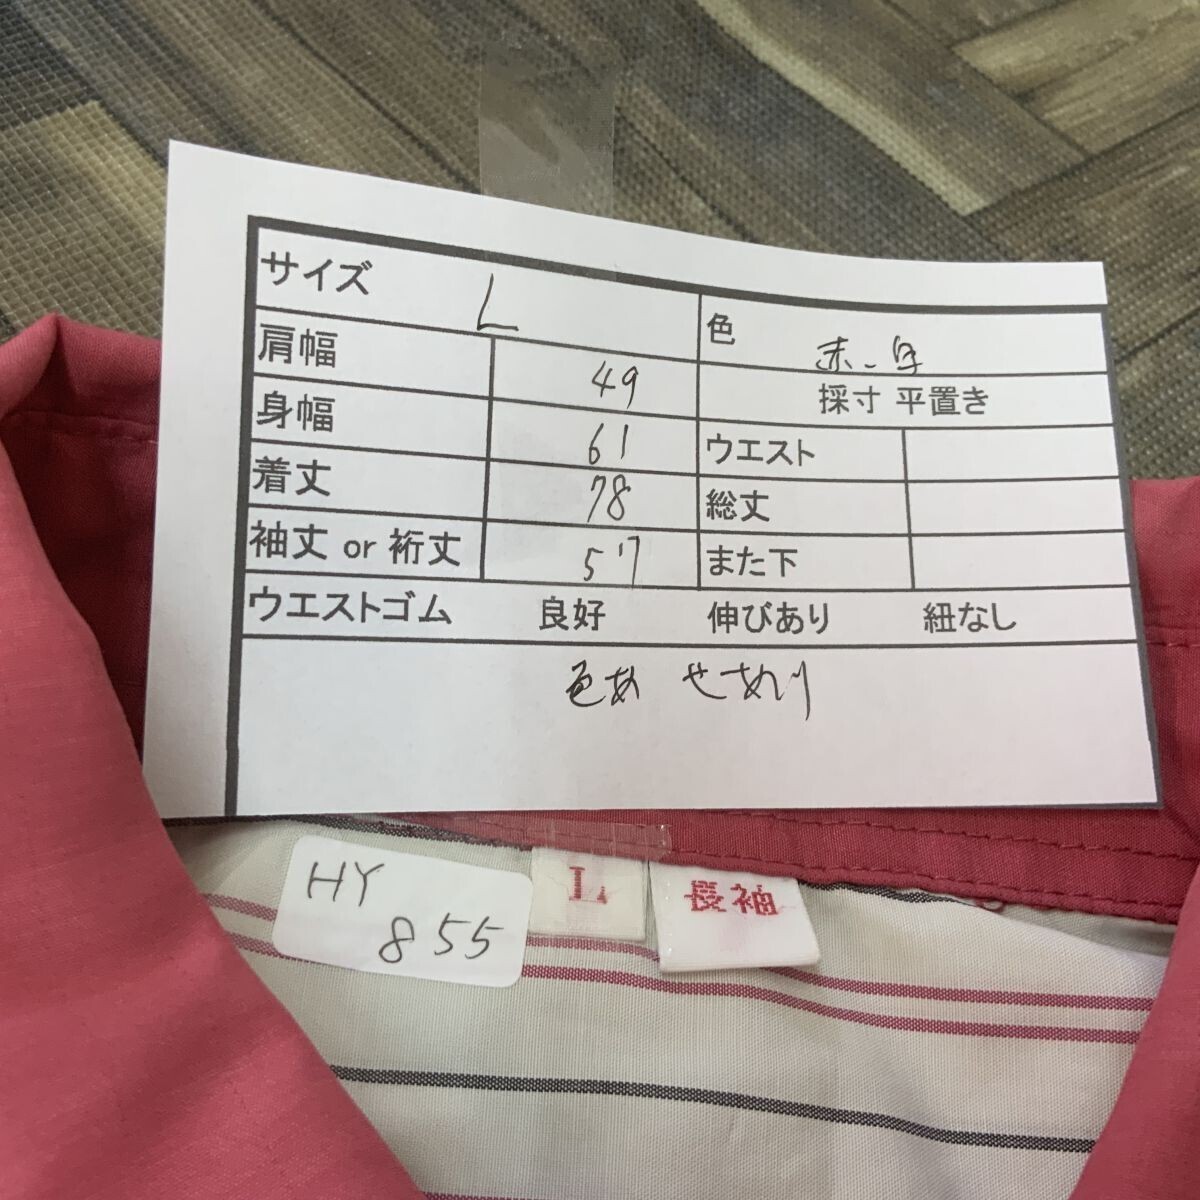 サイズ L 色 赤、白
肩幅 49 採寸 平置き
身幅 61 ウエスト
着丈 78 総丈
袖丈 or 裄丈 57 また下
ウエストゴム 良好 伸びあり 紐なし
色あせあり
HY
855
L
長袖